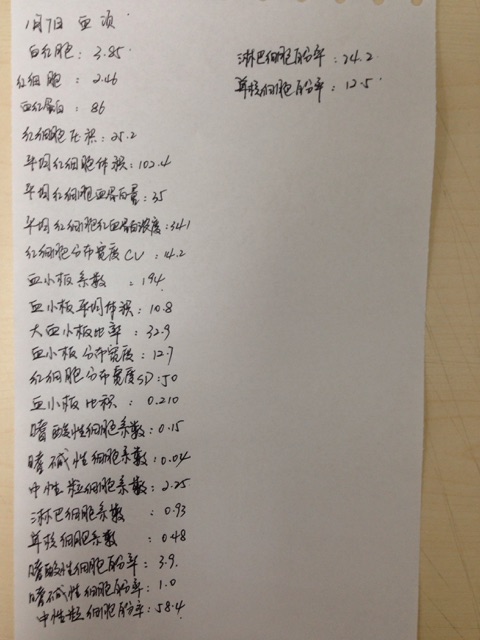 1月7日 血项
白红胞：3.85
红细胞：2.46
血红蛋白：86
红细胞压积：25.2
平均红细胞体积：102.4
平均红细胞血红蛋白量：35
平均红细胞红血蛋白浓度：341
红细胞分布宽度CV：14.2
血小板系数：194
血小板平均体积：10.8
大血小板比率：32.9
血小板分布宽度：12.7
红细胞分布宽度SD：50
血小板比积：0.210
嗜酸性细胞系数：0.15
嗜碱性细胞系数：0.04
中性粒细胞系数：2.25
淋巴细胞系数：0.93
单核细胞系数：0.48
嗜酸性细胞百分率：3.9
嗜碱性细胞百分率：1.0
中性粒细胞百分率：58.4
淋巴细胞百分率：24.2
单核细胞百分率：12.5